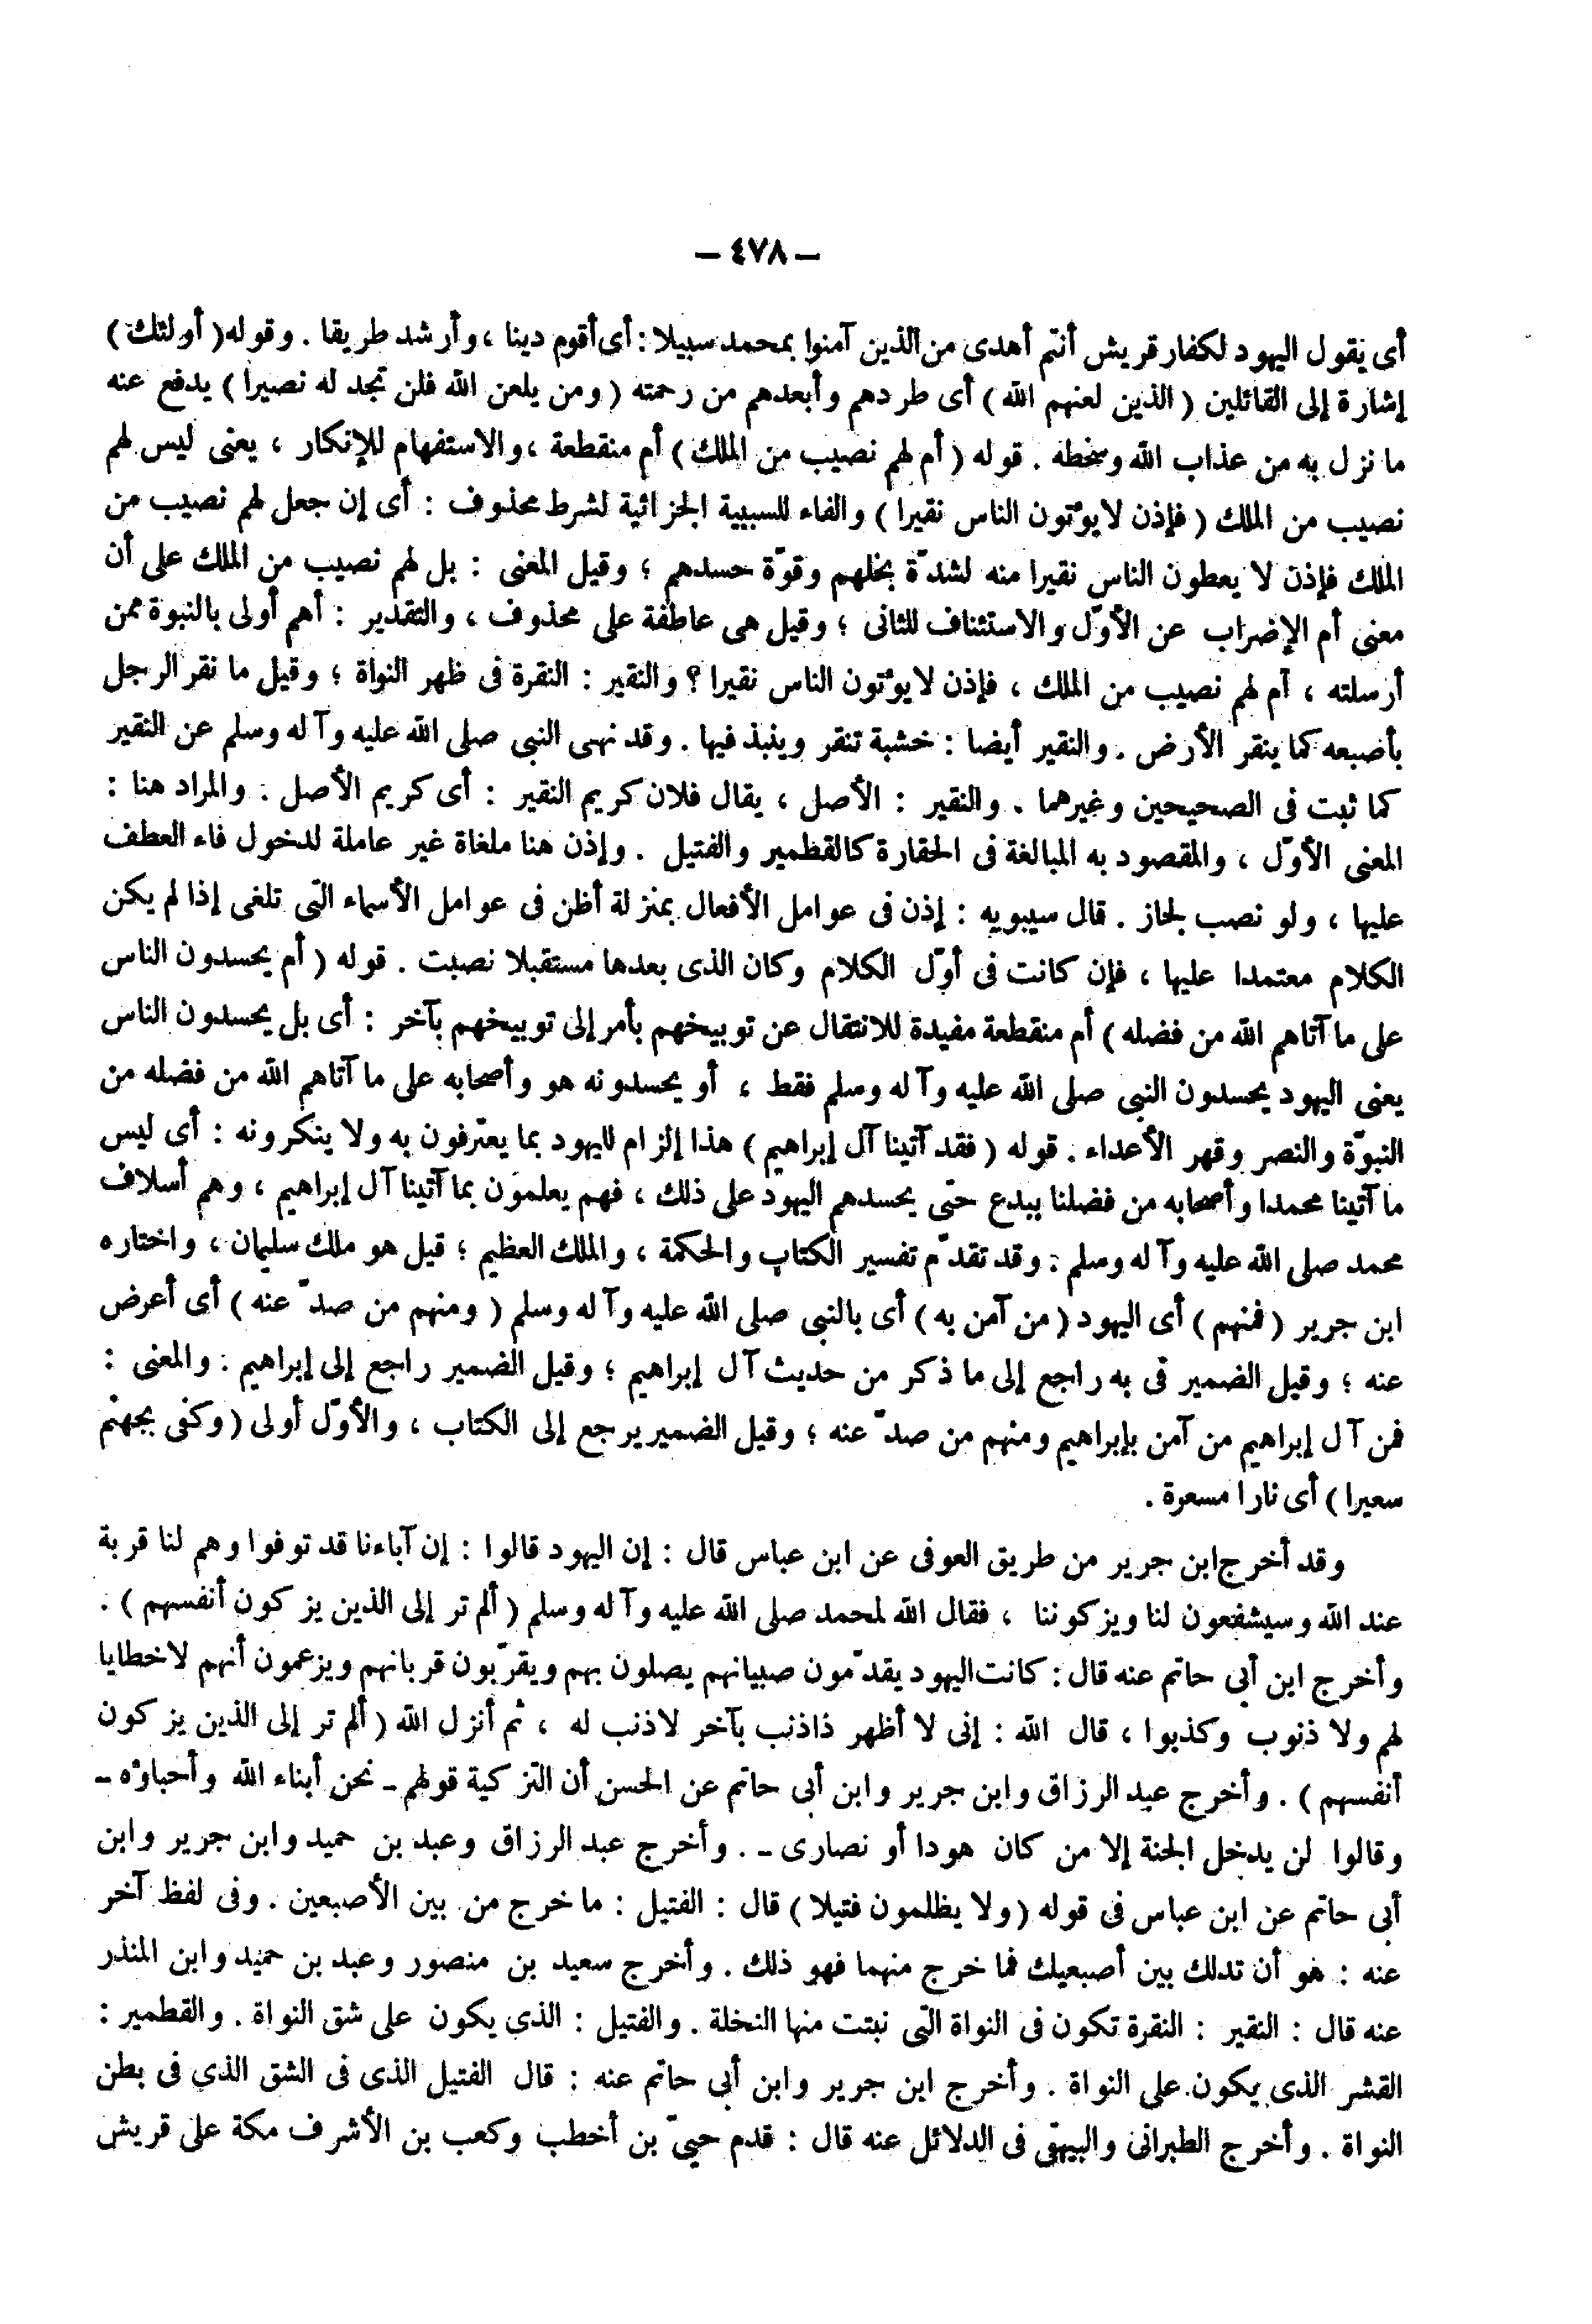 – ٤٧٨ –
أى يقول اليهود لكفار قريش أنتم أهدى من الذين آمنوا بمحمد سبيلا : أى أقوم دينا ، وأرشد طريقا . وقوله ( أولئك )
إشارة إلى القائلين ( الذين لعنهم الله ) أى طردهم وأبعدهم من رحمته ( ومن يلعن الله فلن تجد له نصيرا ) يدفع عنه
ما نزل به من عذاب الله وسخطه . قوله ( أم لهم نصيب من الملك ) أم منقطعة ، والاستفهام للإنكار ، يعنى ليس لهم
نصيب من الملك ( فإذن لا يؤتون الناس نقيرا ) والفاء للسببية الجزائية لشرط محذوف : أى إن جعل لهم نصيب من
الملك فإذن لا يعطون الناس نقيرا منه لشدّة بخلهم وقوّة حسدهم ؛ وقيل المعنى : بل لهم نصيب من الملك على أن
معنى أم الإضراب عن الأوّل والاستئناف للثانى ؛ وقيل هى عاطفة على محذوف ، والتقدير : أهم أولى بالنبوة ممن
أرسلته ، أم لهم نصيب من الملك ، فإذن لا يؤتون الناس نقيرا ؟ والنقير : النقرة فى ظهر النواة ؛ وقيل ما نقر الرجل
بأصبعه كما ينقر الأرض . والنقير أيضا : خشبة تنقر وينبذ فيها . وقد نهى النبى صلى الله عليه وآله وسلم عن النقير
كما ثبت فى الصحيحين وغيرهما . والنقير : الأصل ، يقال فلان كريم النقير : أى كريم الأصل . والمراد هنا :
المعنى الأوّل ، والمقصود به المبالغة فى الحقارة كالقطمير والفتيل . وإذن هنا ملغاة غير عاملة لدخول فاء العطف
عليها ، ولو نصب لجاز . قال سيبويه : إذن فى عوامل الأفعال بمنزلة أظن فى عوامل الأسماء التى تلغى إذا لم يكن
الكلام معتمدا عليها ، فإن كانت فى أوّل الكلام وكان الذى بعدها مستقبلا نصبت . قوله ( أم يحسدون الناس
على ما آتاهم الله من فضله ) أم منقطعة مفيدة للانتقال عن توبيخهم بأمر إلى توبيخهم بآخر : أى بل يحسدون الناس
يعنى اليهود يحسدون النبى صلى الله عليه وآله وسلم فقط ، أو يحسدونه هو وأصحابه على ما آتاهم الله من فضله من
النبوّة والنصر وقهر الأعداء . قوله ( فقد آتينا آل إبراهيم ) هذا إلزام لليهود بما يعترفون به ولا ينكرونه : أى ليس
ما آتينا محمدا وأصحابه من فضلنا ببدع حتى يحسدهم اليهود على ذلك ، فهم يعلمون بما آتينا آل إبراهيم ، وهم أسلاف
محمد صلى الله عليه وآله وسلم . وقد تقدّم تفسير الكتاب والحكمة ، والملك العظيم ؛ قيل هو ملك سليمان ، واختاره
ابن جرير ( فمنهم ) أى اليهود ( من آمن به ) أى بالنبى صلى الله عليه وآله وسلم ( ومنهم من صدّ عنه ) أى أعرض
عنه ؛ وقيل الضمير فى به راجع إلى ما ذكر من حديث آل إبراهيم ؛ وقيل الضمير راجع إلى إبراهيم . والمعنى :
فمن آل إبراهيم من آمن بإبراهيم ومنهم من صدّ عنه ؛ وقيل الضمير يرجع إلى الكتاب ، والأوّل أولى ( وكفى بجهنم
سعيرا ) أى نارا مسعرة .
وقد أخرج ابن جرير من طريق العوفى عن ابن عباس قال : إن اليهود قالوا : إن آباءنا قد توفوا وهم لنا قربة
عند الله وسيشفعون لنا ويزكوننا ، فقال الله لمحمد صلى الله عليه وآله وسلم ( ألم تر إلى الذين يزكون أنفسهم ) .
وأخرج ابن أبى حاتم عنه قال : كانت اليهود يقدّمون صبيانهم يصلون بهم ويقرّبون قربانهم ويزعمون أنهم لا خطايا
لهم ولا ذنوب وكذبوا ، قال الله : إنى لا أظهر ذا ذنب بآخر لا ذنب له ، ثم أنزل الله ( ألم تر إلى الذين يزكون
أنفسهم ) . وأخرج عبد الرزاق وابن جرير وابن أبى حاتم عن الحسن أن التزكية قولهم - نحن أبناء الله وأحباؤه -
وقالوا لن يدخل الجنة إلا من كان هودا أو نصارى - . وأخرج عبد الرزاق وعبد بن حميد وابن جرير وابن
أبى حاتم عن ابن عباس فى قوله ( ولا يظلمون فتيلا ) قال : الفتيل : ما خرج من بين الأصبعين . وفى لفظ آخر
عنه : هو أن تدلك بين أصبعيك فما خرج منهما فهو ذلك . وأخرج سعيد بن منصور وعبد بن حميد وابن المنذر
عنه قال : النقير : النقرة تكون فى النواة التى نبتت منها النخلة . والفتيل : الذى يكون على شق النواة . والقطمير :
القشر الذى يكون على النواة . وأخرج ابن جرير وابن أبى حاتم عنه : قال الفتيل الذى فى الشق الذى فى بطن
النواة . وأخرج الطبرانى والبيهقى فى الدلائل عنه قال : قدم حيىّ بن أخطب وكعب بن الأشرف مكة على قريش